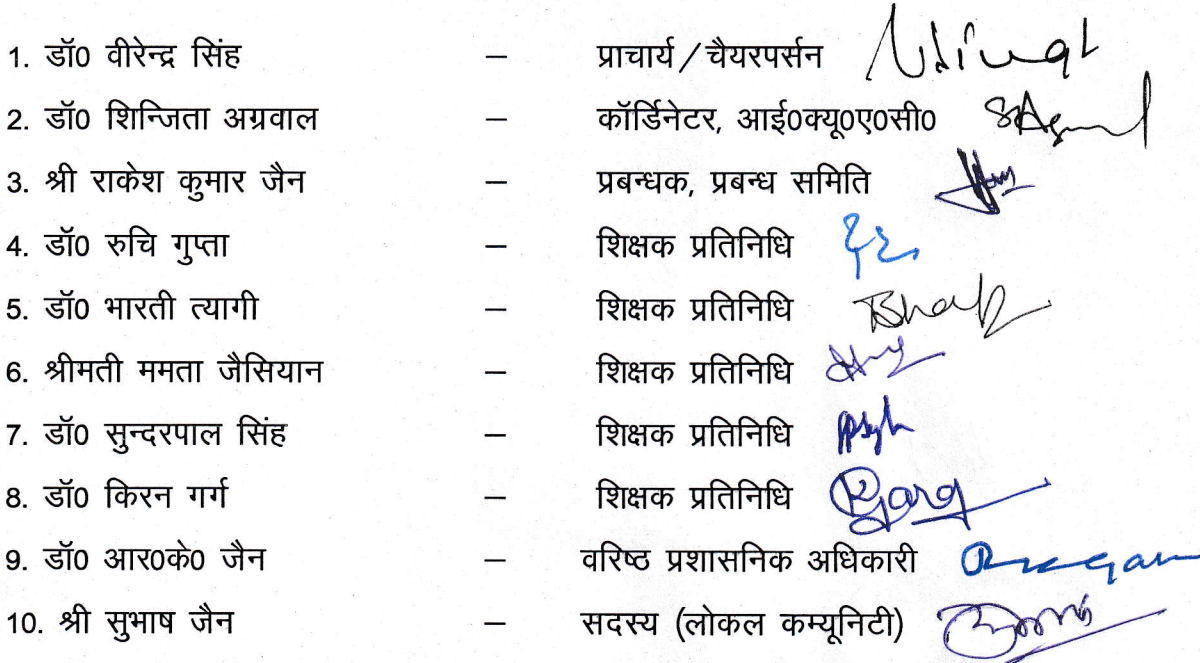 1. डॉ0 वीरेन्द्र सिंह – प्राचार्य/चैयरपर्सन
2. डॉ0 शिन्जिता अग्रवाल – कॉर्डिनेटर, आई0क्यू0ए0सी0
3. श्री राकेश कुमार जैन – प्रबन्धक, प्रबन्ध समिति
4. डॉ0 रुचि गुप्ता – शिक्षक प्रतिनिधि
5. डॉ0 भारती त्यागी – शिक्षक प्रतिनिधि
6. श्रीमती ममता जैसियान – शिक्षक प्रतिनिधि
7. डॉ0 सुन्दरपाल सिंह – शिक्षक प्रतिनिधि
8. डॉ0 किरन गर्ग – शिक्षक प्रतिनिधि
9. डॉ0 आर0के0 जैन – वरिष्ठ प्रशासनिक अधिकारी
10. श्री सुभाष जैन – सदस्य (लोकल कम्यूनिटी)